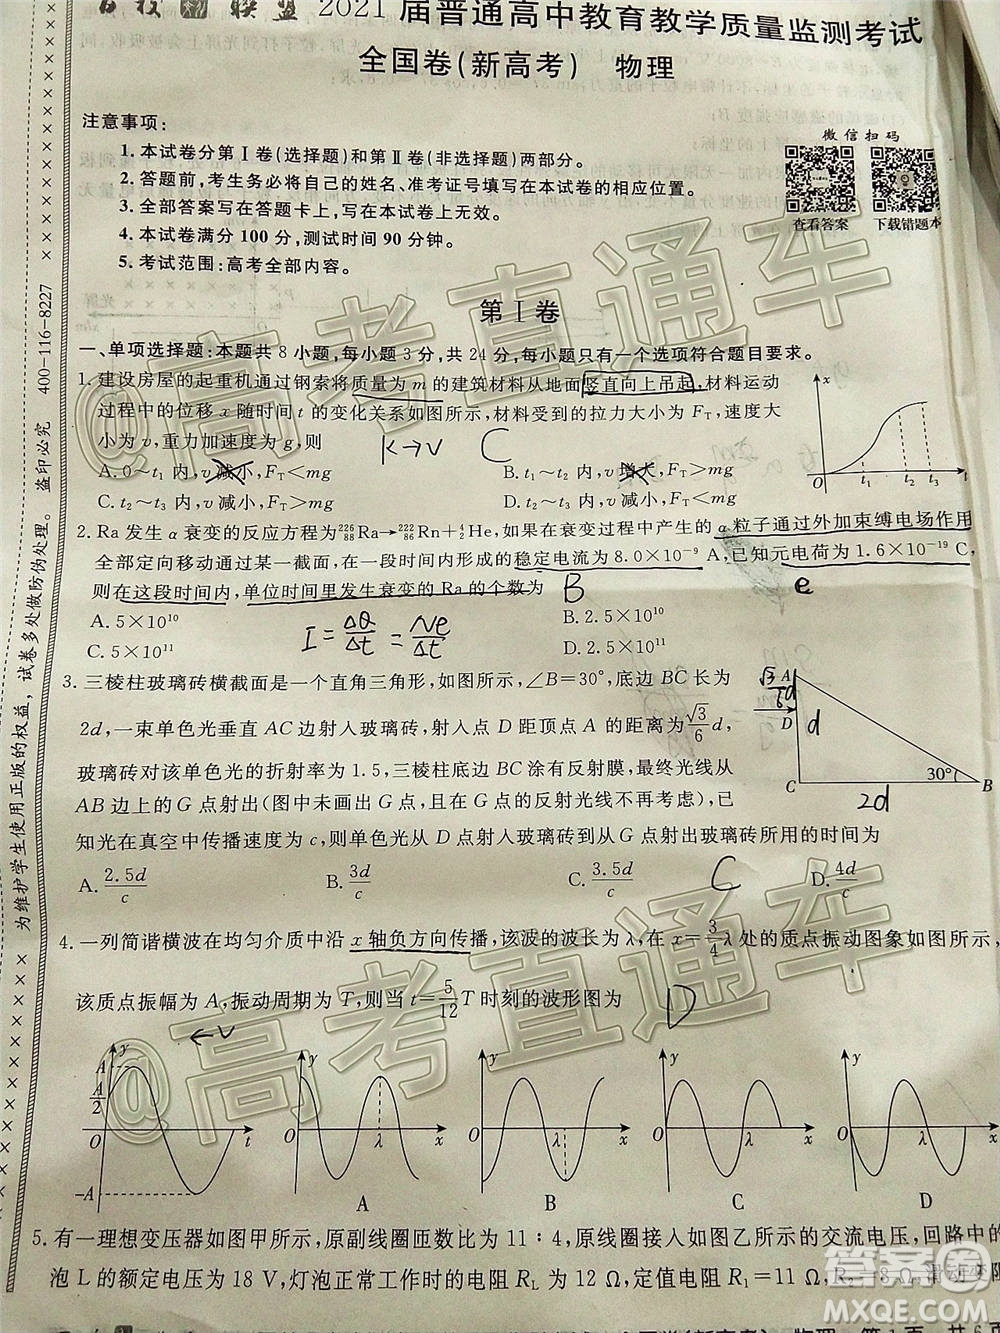 百校 联盟 2021 届普通高中教育教学质量监测考试
全国卷(新高考) 物理
注意事项:
微信扫码
1. 本试卷分第Ⅰ卷(选择题)和第Ⅱ卷(非选择题)两部分。
2. 答题前,考生务必将自己的姓名、准考证号填写在本试卷的相应位置。
3. 全部答案写在答题卡上,写在本试卷上无效。
查看答案 下载错题本
4. 本试卷满分 100 分,测试时间 90 分钟。
5. 考试范围:高考全部内容。
第Ⅰ卷
一、单项选择题:本题共 8 小题,每小题 3 分,共 24 分,每小题只有一个选项符合题目要求。
1. 建设房屋的起重机通过钢索将质量为 m 的建筑材料从地面竖直向上吊起,材料运动
过程中的位移 x 随时间 t 的变化关系如图所示,材料受到的拉力大小为 F_T,速度大
小为 v,重力加速度为 g,则
K→v C
A. 0~t₁ 内,v 减小,F_T<mg B. t₁~t₂ 内,v 增大,F_T>mg
C. t₂~t₃ 内,v 减小,F_T<mg D. t₂~t₃ 内,v 减小,F_T>mg
x O t₁ t₂ t₃ t
2. Ra 发生 α 衰变的反应方程为²²⁶₈₈Ra→²²²₈₆Rn+⁴₂He,如果在衰变过程中产生的 α 粒子通过外加束缚电场作用
全部定向移动通过某一截面,在一段时间内形成的稳定电流为 8.0×10⁻⁹ A,已知元电荷为 1.6×10⁻¹⁹ C,
则在这段时间内,单位时间里发生衰变的 Ra 的个数为 B e
A. 5×10¹⁰ B. 2.5×10¹⁰
C. 5×10¹¹ D. 2.5×10¹¹
I = ΔQ/Δt = Ne/Δt
3. 三棱柱玻璃砖横截面是一个直角三角形,如图所示,∠B=30°,底边 BC 长为
2d,一束单色光垂直 AC 边射入玻璃砖,射入点 D 距顶点 A 的距离为√3/6 d,
玻璃砖对该单色光的折射率为 1.5,三棱柱底边 BC 涂有反射膜,最终光线从
AB 边上的 G 点射出(图中未画出 G 点,且在 G 点的反射光线不再考虑),已
知光在真空中传播速度为 c,则单色光从 D 点射入玻璃砖到从 G 点射出玻璃砖所用的时间为
A. 2.5d/c B. 3d/c C. 3.5d/c D. 4d/c
C
√3/6 d A D d C 30° B 2d
4. 一列简谐横波在均匀介质中沿 x 轴负方向传播,该波的波长为 λ,在 x=3/4 λ 处的质点振动图象如图所示,
该质点振幅为 A,振动周期为 T,则当 t=5/12 T 时刻的波形图为 D
←v
y A A/2 O -A t
y O λ x A
y O λ x B
y O λ x C
y O λ x D
5. 有一理想变压器如图甲所示,原副线圈匝数比为 11∶4,原线圈接入如图乙所示的交流电压,回路中的
泡 L 的额定电压为 18 V,灯泡正常工作时的电阻 R_L 为 12 Ω,定值电阻 R₁=11 Ω,R₂=8 Ω,滑动变阻
为维护学生使用正版的权益,试卷多处做防伪处理。盗印必究 400-116-8227
@高考直通车
@高考直通车
答案圈
MXQE.COM